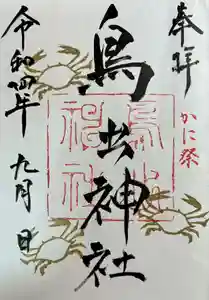 奉拝
かに祭
鳥出神社
令和四年 九月 日